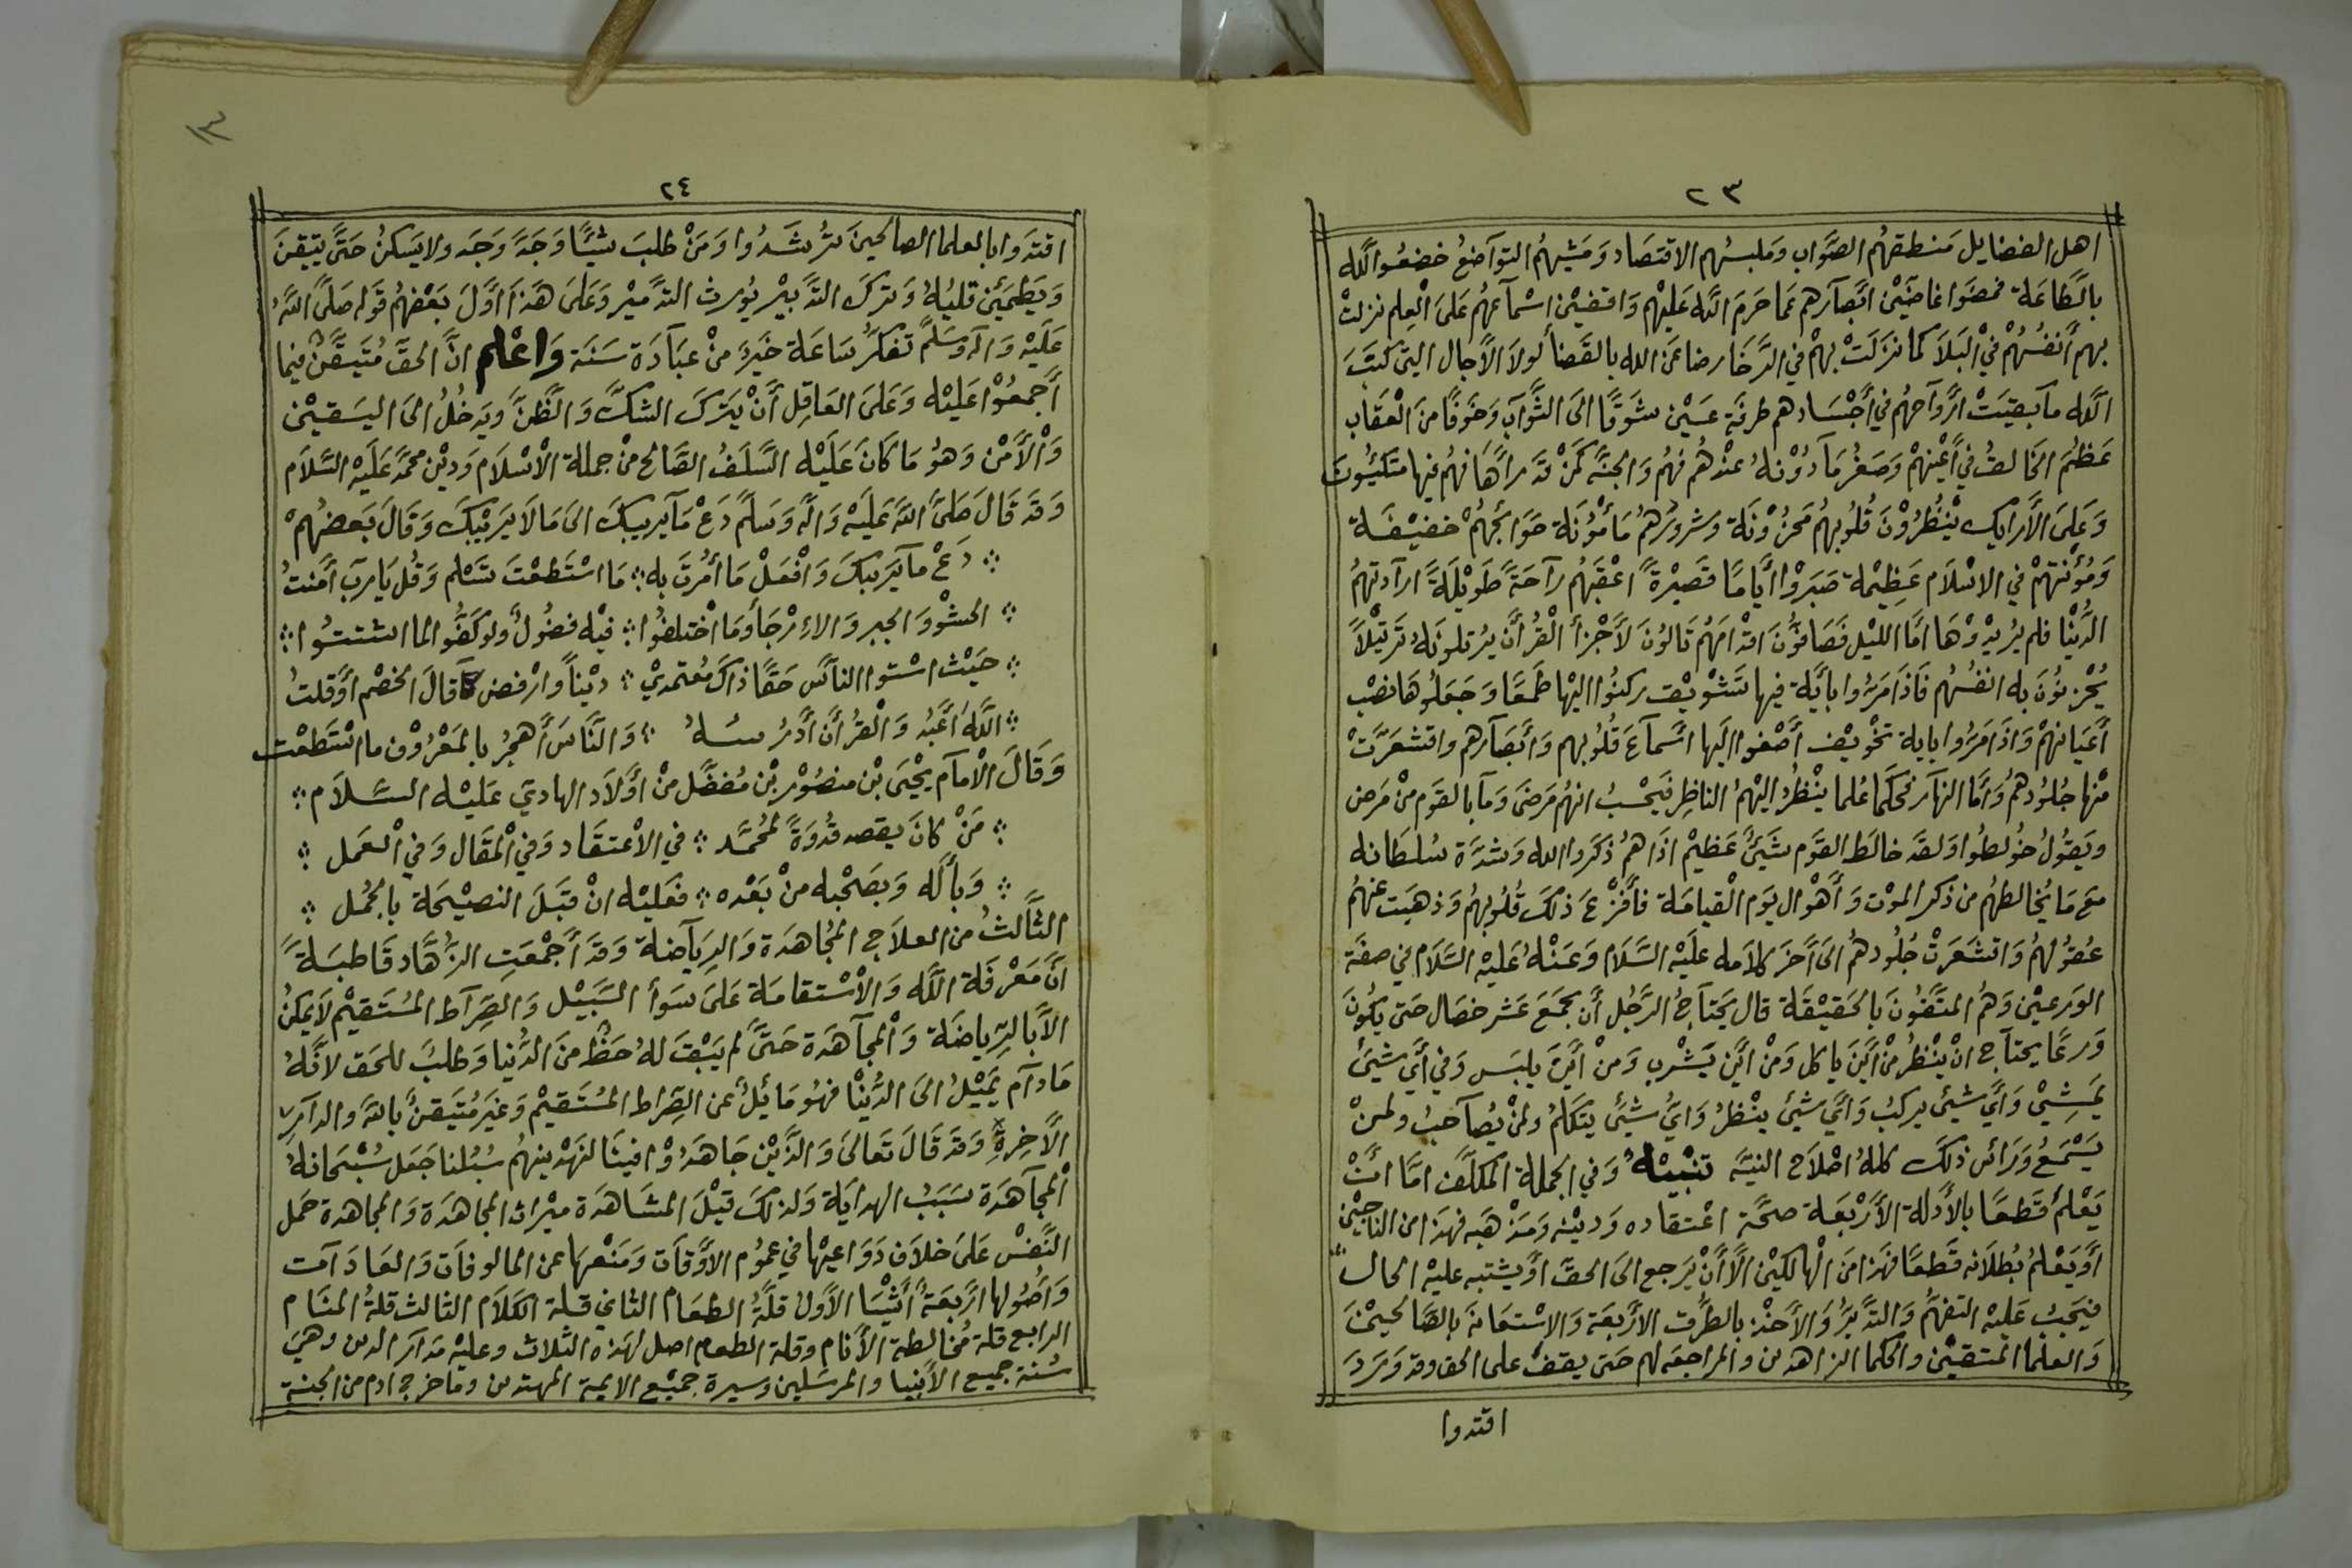 ٢٣
اهل الفضايل مَنطقهُم الصَّوَاب وملبسُهم الاقتصَاد وَمَشيهُم التوَآضعُ خضعُوا لله
بالطَّاعَة فمضَوا غاضِّيْن ابَّصَآرهم عَما حَرمَ اللَّه عَليْهم وَاقفيْن اسْمآ عهُم عَلىَ الْعِلم نزلتْ
بهم أنفسُهُمْ فيْ الْبَلاَ كما نزَلَتْ بهمْ في الرَّخَا رضا عَن الله بالقَضأ لولاَ الاَجال التيْ كتبَ
اللَّه مآ بقيَتْ ارَّوآحهُم في أجْسَادهم طرفَة عَيْن شَوقًا الىَ الثَّوَآب وَخَوفًا منَ الْعقَاب
عَظمَ الخَالقُ في أعْينهمْ وَصَغرُمَآ دُوْنهُ عنْدهُم فهُم وَالجنَّة كمَنْ قدَ رأهَا فهُم فيها متكئيُونَ
وَعَلىَ الأَرايك يَنْظرُوْنَ قُلُوبهُم مَحزُوْنَة وشرورُهُم مَأمُوْنَة حَوَائجُهُمْ خفيْفَة
وَمُؤنتهمْ في الاسْلاَم عَظيْمة صَبَروْا أيامًا قَصيْرةً اعْقبَهُم رآحَةً طَويْلَةً ارآدتهُم
الدُنْيا فلم يُريْدوْهَا امَّا الليْل فَصَافوُّنَ اقْدَامَهُم تَالوُنَ لأَجْزأ الْقُرأن يُرتلونَهُ تَرتيْلاً
يُحْزنوُنَ به انفسُهُم فَاذَا مَرُّوا بايَّة فيها تَشْويْق ركنوُا اليْها طَمَعًا وَجَعَلوُهَا نصْب
أعيَانهمْ وَاذَا مَرُّوا باية تخْويْف أصْغوا اليَها اسَّمآعَ قلُوبهم وَأبصَآرهم واقشعَرَّتْ
منْها جُلُودهُم وَأمَّا النهَار فحُكمَا عُلما يَنْظرُ اليْهُم الناظِر فيَحْسبُ انهُم مَرضىَ وَمآ بالقوَم منْ مَرَض
وَيَقوُلُ خوُلطوُا وَلقَد خالطَ القوَم شَيئٌ عَظيْم اذَا هُم ذكَروا الله وَشدَّة سُلطَانه
معَ مَا يُخالطهُم من ذكر الموْت وَأهْوال يَوم الْقيامَة فأفْزَعَ ذلكَ قُلوُبهُم وَذهبَت عنهُم
عُقوُلهُم وَاقشَعَرتْ جُلُودهُم الىَ أخَر كلاَمه عَلَيْه السَّلاَم وَعَنْهُ عَليْه السَّلاَم في صفَة
الورعيْن وَهُم المتَّقُونَ بالحَقيْقَة قال يَحْتآجُ الرَّجُل أن يَجمَعَ عَشر خصَال حَتى يكوُنَ
وَرعًا يحتآج انْ يَنْظرُ منْ أيْنَ ياكل وَمنْ أيْن يَشْرب وَمنْ أيْنَ يلبَس وَفي أي شيَئ
يَمشِيْ وَأي شيئ يركبُ وَأي شيئ ينْظرُ وَايُّ شيَئ يتكَلمُ ولمنْ يُصآحبُ ولمنْ
يَسْمَعُ وَرَأسُ ذلكَ كلهُ اصْلاَح النيَّة تنْبيْهُ وَفي الجملة المكلَّف امَّا انْ
يَعْلمُ قَطعًا بالأَدلة الأرْبَعَة صحَّة اعْتقاده وَديْنه وَمَذْهَبه فهَذَا من الناجيْن
أوَيَعْلمُ بُطلاَنه قَطعًا فهَذا منَ الْهالكيْن الاَّ أنْ يَرجع الىَ الحقَّ أوَيشتبه عليْه الحال
فيَجبُ عَليْه التفهُّم وَالتدَّبرُ وَالأَخذ بالطُرق الأربعَة وَالاسْتعَانة بالصَّالحيْنَ
وَالعلمأ المتقيْن والحكما الزاهدين والمراجعَه لهم حَتى يقفَ على الحق وقد وَردَ
اقتدوا
٢٤
١٣
اقتدَوا بالعلما الصالحينَ تُرشَدُوا وَمَنْ طلبَ شيًّا وَجَدَّ وَجَد ولا يَسكنُ حَتىَّ يتيقنَ
وَيَطمَئن قلبُهُ وَتركَ التدَّبيْر يُورث التدَّميْر وَعَلىَ هَذآ اوَّلَ بَعْضهُم قوَله صَلىَّ اللهُ
عَلَيْه وَآله وَسَلَّم تفكرُ سَاعَة خَيرٌ منْ عبَادَة سَنَة وَاعْلم انَّ الحقَّ مُتيَقَّنٌ فيما
أجمعُوْا عَليْه وَعَلىَ العَاقِل أنْ يَتركَ الشكَّ وَالظَّنَّ ويَدخُلُ الىَ اليَقيْن
وَالأَمْن وَهُوَ مَا كَانَ عَلَيْه السَّلَفُ الصَّالح منْ جملة الْاسْلاَم وَديْن محمَّد عَلَيْه السَّلاَم
وَقد قَالَ صَلىَّ اللَّه عَلَيْه وَالَّه وَسَلَّم دَعْ مآ يريبكَ الىَ مَا لاَ يَريْبكَ وَقَالَ بَعضهُمْ
؞ دَعْ مآ يَريبكَ وَافْعَلْ مَا أمُرتَ به ؞ مَا اسْتَطعْتَ تَسْلم وَقُل يَارب أمَنتُ
؞ الحشْوُ وَالجبر وَالاءرْجَأ وَمَا اخْتلفوُا ؞ فيْه فضُولٌ ولوكَفُّوا لما اشتتوُا ؞
؞ حَيْثُ اسْتوا الناَّس حَقًا ذاكَ مُعتمديْ ؞ ديْناً وارْفض مآ قالَ الخصْم أوَقلتُ
؞ اللَّهَ أعَبُد وَالْقرُأنَ أدَّرُسُهُ ؞ وَالنَّاسَ أهجرُ بالمَعْروْف ما اسْتَطعْت
وَقَالَ الْامآم يحْيىَ بْن منصُوْر بْن مُفضَّل منْ أوَلاَد الهادي عَليْه السَّلاَم ؞
؞ مَنْ كانَ يقصد قُدوَةً لمُحَمَّد ؞ في الاعْتقَاد وَفي الْمَقال وَفي الْعَمل ؞
؞ وَبأله وَبصَحْبه منْ بَعْده ؞ فعَليْه انْ قبَلَ النصيْحَة بالجُمل ؞
الثَّالثُ من العلاَج المُجَاهدَة وَالريَآضة وَقدَ أجمْعَتِ الزُهَّاد قَاطبَةً
انَّ مَعْرفَة اللَّه وَالاْسْتقامَة عَلىَ سَوأ السَّبيْل وَالصِّرآط المُسْتقيْم لاَ يمَكنُ
الاَّ بالرِّياضَة وَالمجآهَدة حَتىَّ لم يَبْقَ لهُ حَظٌ منَ الدُنيا وَطلبَ للحَق لانَّهُ
مَادآم يَميْلُ الىَ الدُنْيا فهُو مَائلٌ عن الصِّراط المُستقيْم وَغيَر مُتيَقنٌ بالله والدآر
الاَخِرةِ وَقدَ قَالَ تَعَالىَ وَالذَّيْنَ جَاهَدُوْا فينَا لنَهْدينهُم سُبُلنا جَعَل سُبْحَانهُ
الْمجآهَدَة سَبَبُ الهدايَة وَلذلكَ قيْلَ المشَاهَدَة ميْراث المجاهَدَة وَالمجاهدة حَمل
النَّفْس عَلىَ خلاَف دَوَاعيْهَا في عمُوم الأوَقَات وَمَنْعهَا عن المالوفَات وَالعَادَآت
وَأصُولها أرَبعَةُ أشْيَا الأَوَلُ قلَّةُ الطعَام الثاني قلة الكَلاَم الثالث قلةُ المنَام
الرابع قلة مُخالطة الأَنَام وقلة الطعام اصل لهَذه الثلاث وعليْه مَدَار الدين وهيَ
سُنة جميع الأَنبيا والمرسَلين وسيرة جميْع الايمة المهتدين وَمَا خرج ادم من الجنة